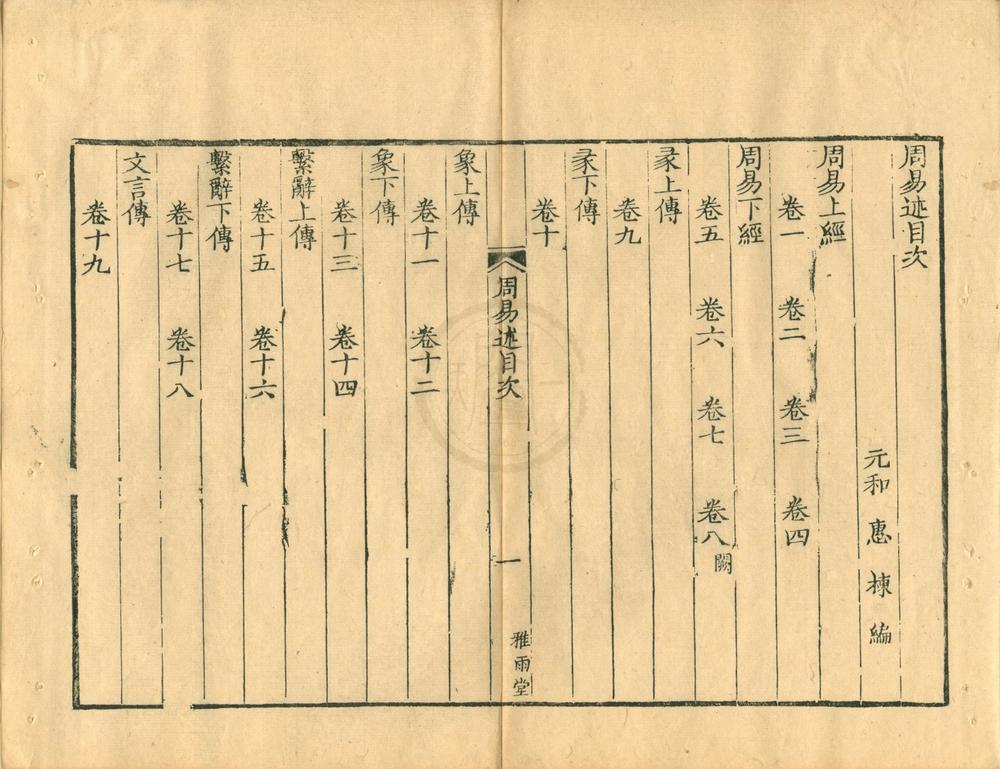 周易述目次
元和 惠 棟 編
周易上經
卷一 卷二 卷三 卷四
周易下經
卷五 卷六 卷七 卷八闕
彖上傳
卷九
彖下傳
卷十
周易述目次 一 雅雨堂
象上傳
卷十一 卷十二
象下傳
卷十三 卷十四
繫辭上傳
卷十五 卷十六
繫辭下傳
卷十七 卷十八
文言傳
卷十九